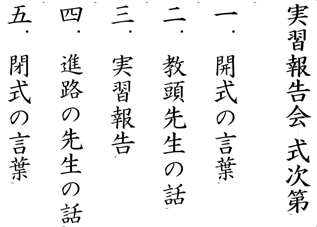 実習報告会 式次第
一．開式の言葉
二．教頭先生の話
三．実習報告
四．進路の先生の話
五．閉式の言葉